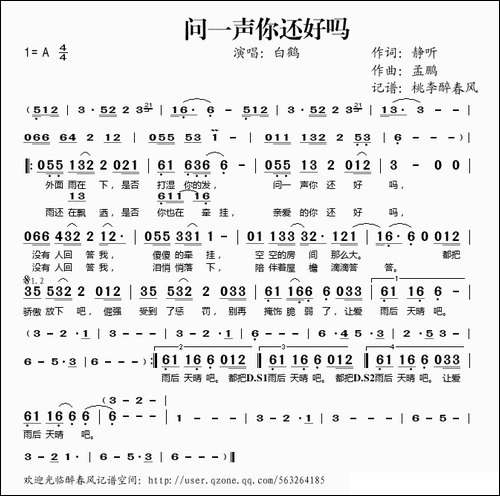 问一声你还好吗
1=A 4/4 演唱：白鹤 作词：静听
作曲：孟鹏
记谱：桃李醉春风
(5 1 2 | 3 · 5 2 2 3 21 | 1 6 · 6 - | 5 · 5 2 2 3 21 | 1 3 · 3 - |
0 6 6 6 4 2 1 2 | 0 5 5 5 3 1 - | 0 1 1 1 3 2 2 5 3 | 6 - - - ) |
‖: 0 5 5 1 3 2 2 0 2 1 | 6 1 6 3 6 6 - | 0 5 5 1 3 2 2 0 1 2 | 3 - 0 0 |
外面 雨在 下，是否 打湿 你的发， 问一 声你 还 好 吗，
1 3 6 1 1 1 6
雨还 在飘 洒，是否 你也在 牵 挂， 亲爱 的你 还 好 吗，
0 6 6 4 3 2 2 1 2 · | 0 2 1 1 3 3 · | 0 2 1 1 3 3 2 · 1 2 1 | 1 6 · 6 0 1 2 |
没有 人回 答我， 傻傻 的牵 挂， 空 空的房 间 那么 大。 都把
没有 人回 答我， 泪悄 悄落 下， 陪 伴着屋 檐 滴滴答 答。
1.2
3 5 5 3 2 2 0 3 5 | 5 3 5 3 2 2 0 3 3 | 6 1 1 6 6 6 0 3 3 | 6 1 1 6 6 - |
骄傲 放下 吧，倔强 受到 了惩 罚，别再 掩饰 脆 弱 了，让爱 雨后 天晴 吧。
(3 - 2 · 1 | 3 - 5 · 3 | 6 - - - | 6 - 6 4 5 | 3 - 2 · 1 |
6 - 5 · 3 | 6 - - - ) :‖ 6 1 1 6 6 0 1 2 | 6 1 1 6 6 0 1 2 | 6 1 1 6 6 0 3 3 |
雨后 天晴 吧。都把D.S1雨后 天晴 吧。都把D.S2雨后 天晴 吧。让爱
(3 - 2 - )
6 1 1 6 · 6 6 | 6 - - - | 1 - - - | 3 - 2 · 1 | 3 - 5 · 3 |
雨后 天晴 吧。
6 - - - | 2 - 3 · 1 | 6 - 5 · 3 | 6 - - - | 6 - - - ) ‖
欢迎光临醉春风记谱空间：http://user.qzone.qq.com/563264185